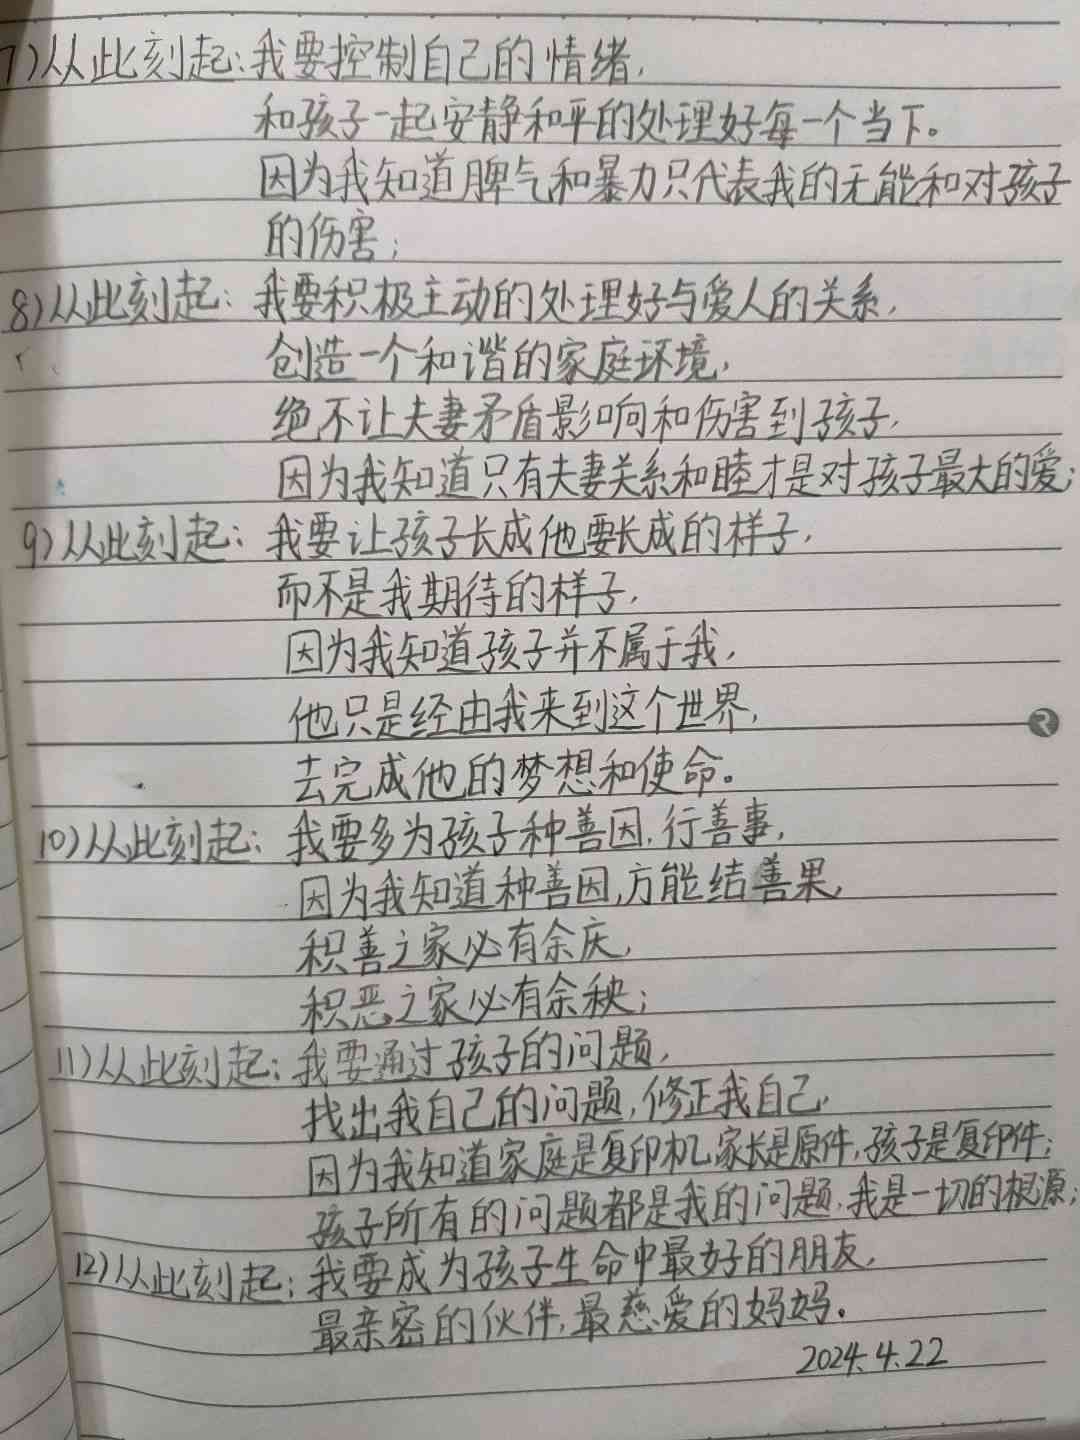 7)从此刻起:我要控制自己的情绪,
和孩子一起安静和平的处理好每一个当下。
因为我知道脾气和暴力只代表我的无能和对孩子
的伤害;
8)从此刻起:我要积极主动的处理好与爱人的关系,
创造一个和谐的家庭环境,
绝不让夫妻矛盾影响和伤害到孩子,
因为我知道只有夫妻关系和睦才是对孩子最大的爱;
9)从此刻起:我要让孩子长成他要长成的样子,
而不是我期待的样子,
因为我知道孩子并不属于我,
他只是经由我来到这个世界,
2
去完成他的梦想和使命。
10)从此刻起:我要多为孩子种善因,行善事,
因为我知道种善因,方能结善果,
积善之家必有余庆,
积恶之家必有余秧;
11)从此刻起:我要通过孩子的问题,
找出我自己的问题,修正我自己,
因为我知道家庭是复印机,家长是原件,孩子是复印件;
孩子所有的问题都是我的问题,我是一切的根源;
12)从此刻起:我要成为孩子生命中最好的朋友,
最亲密的伙伴,最慈爱的妈妈。
2024.4.22